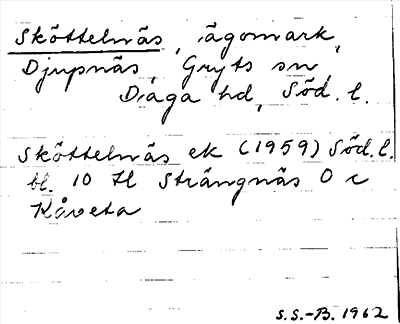 Sköttelnäs, ägomark,
Djupnäs, Gryts sn,
Daga hd, Söd. l.
Sköttelnäs ek (1959) Söd. l.
bl. 10 Hl Strängnäs O c
Kåveta
S.S.-B. 1962